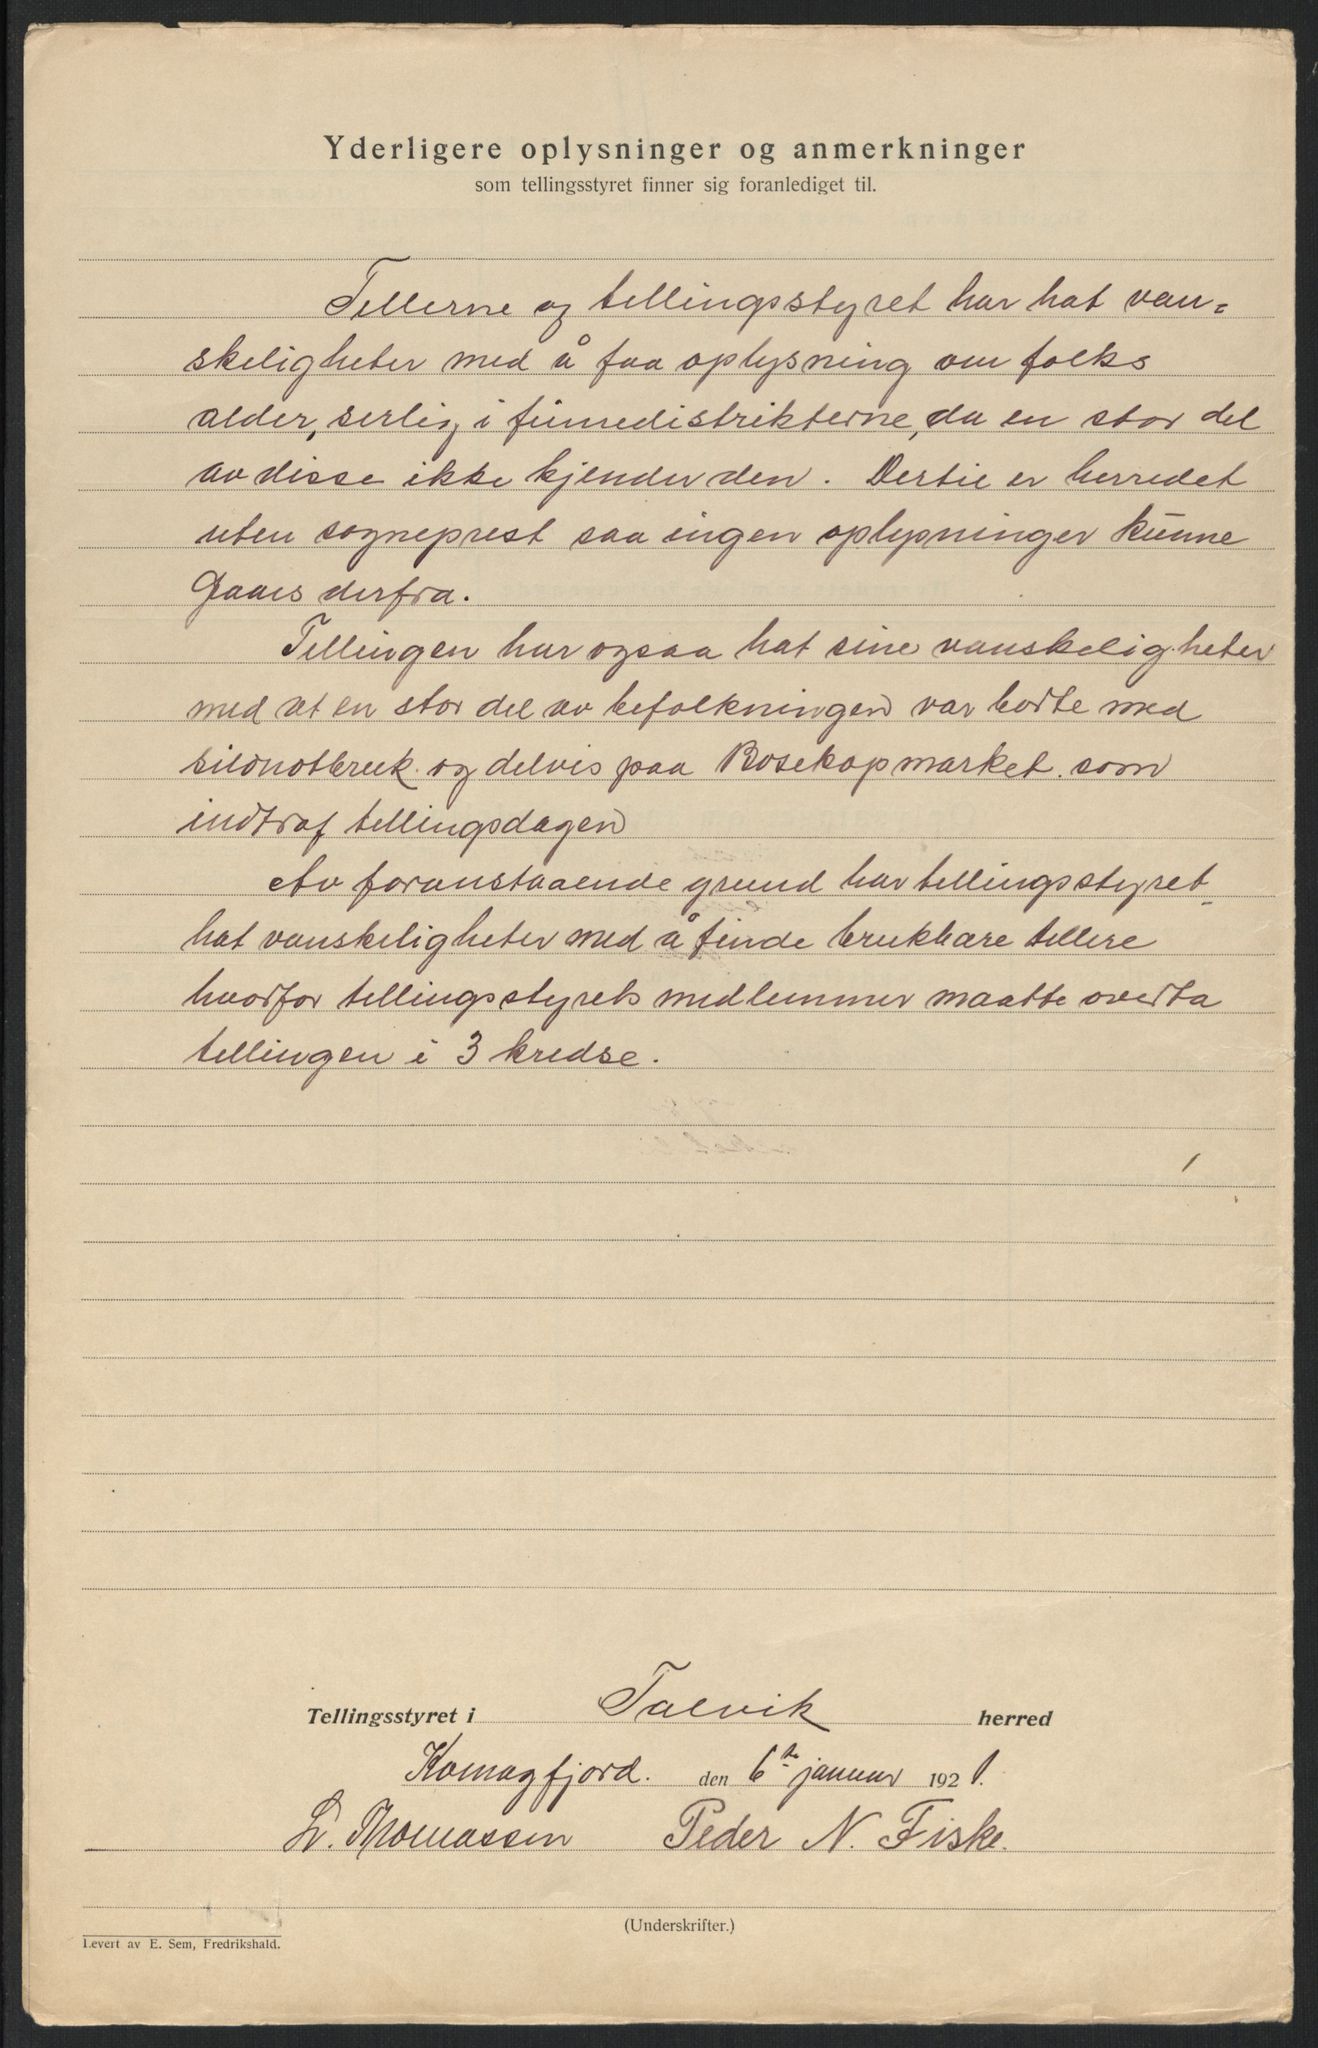 Yderligere oplysninger og anmerkninger
som tellingsstyret finner sig foranlediget til.
Tellerne og tellingsstyret har hat van=
skeligheter med å faa oplysning om folks
alder, serlig i finnedistrikterne, da en stor del
av disse ikke kjender den. Dertil er herredet
uten sogneprest saa ingen oplysninger kunne
gaaes derfra.
Tellingen har ogsaa hat sine vanskeligheter
med at en stor del av befolkningen var borte med
sildnotbruk og delvis paa Bosekopmarket som
indtraf tellingsdagen
Av foranstaaende grund har tellingsstyret
hat vanskeligheter med å finde brukbare tellere
hvorfor tellingsstyrets medlemmer maatte overta
tellingen i 3 kredse.
Tellingsstyret i Talvik herred
Komagfjord. den 6te januar 1921.
L. Thomassen Peder N. Fiske.
(Underskrifter.)
Levert av E. Sem, Fredrikshald.